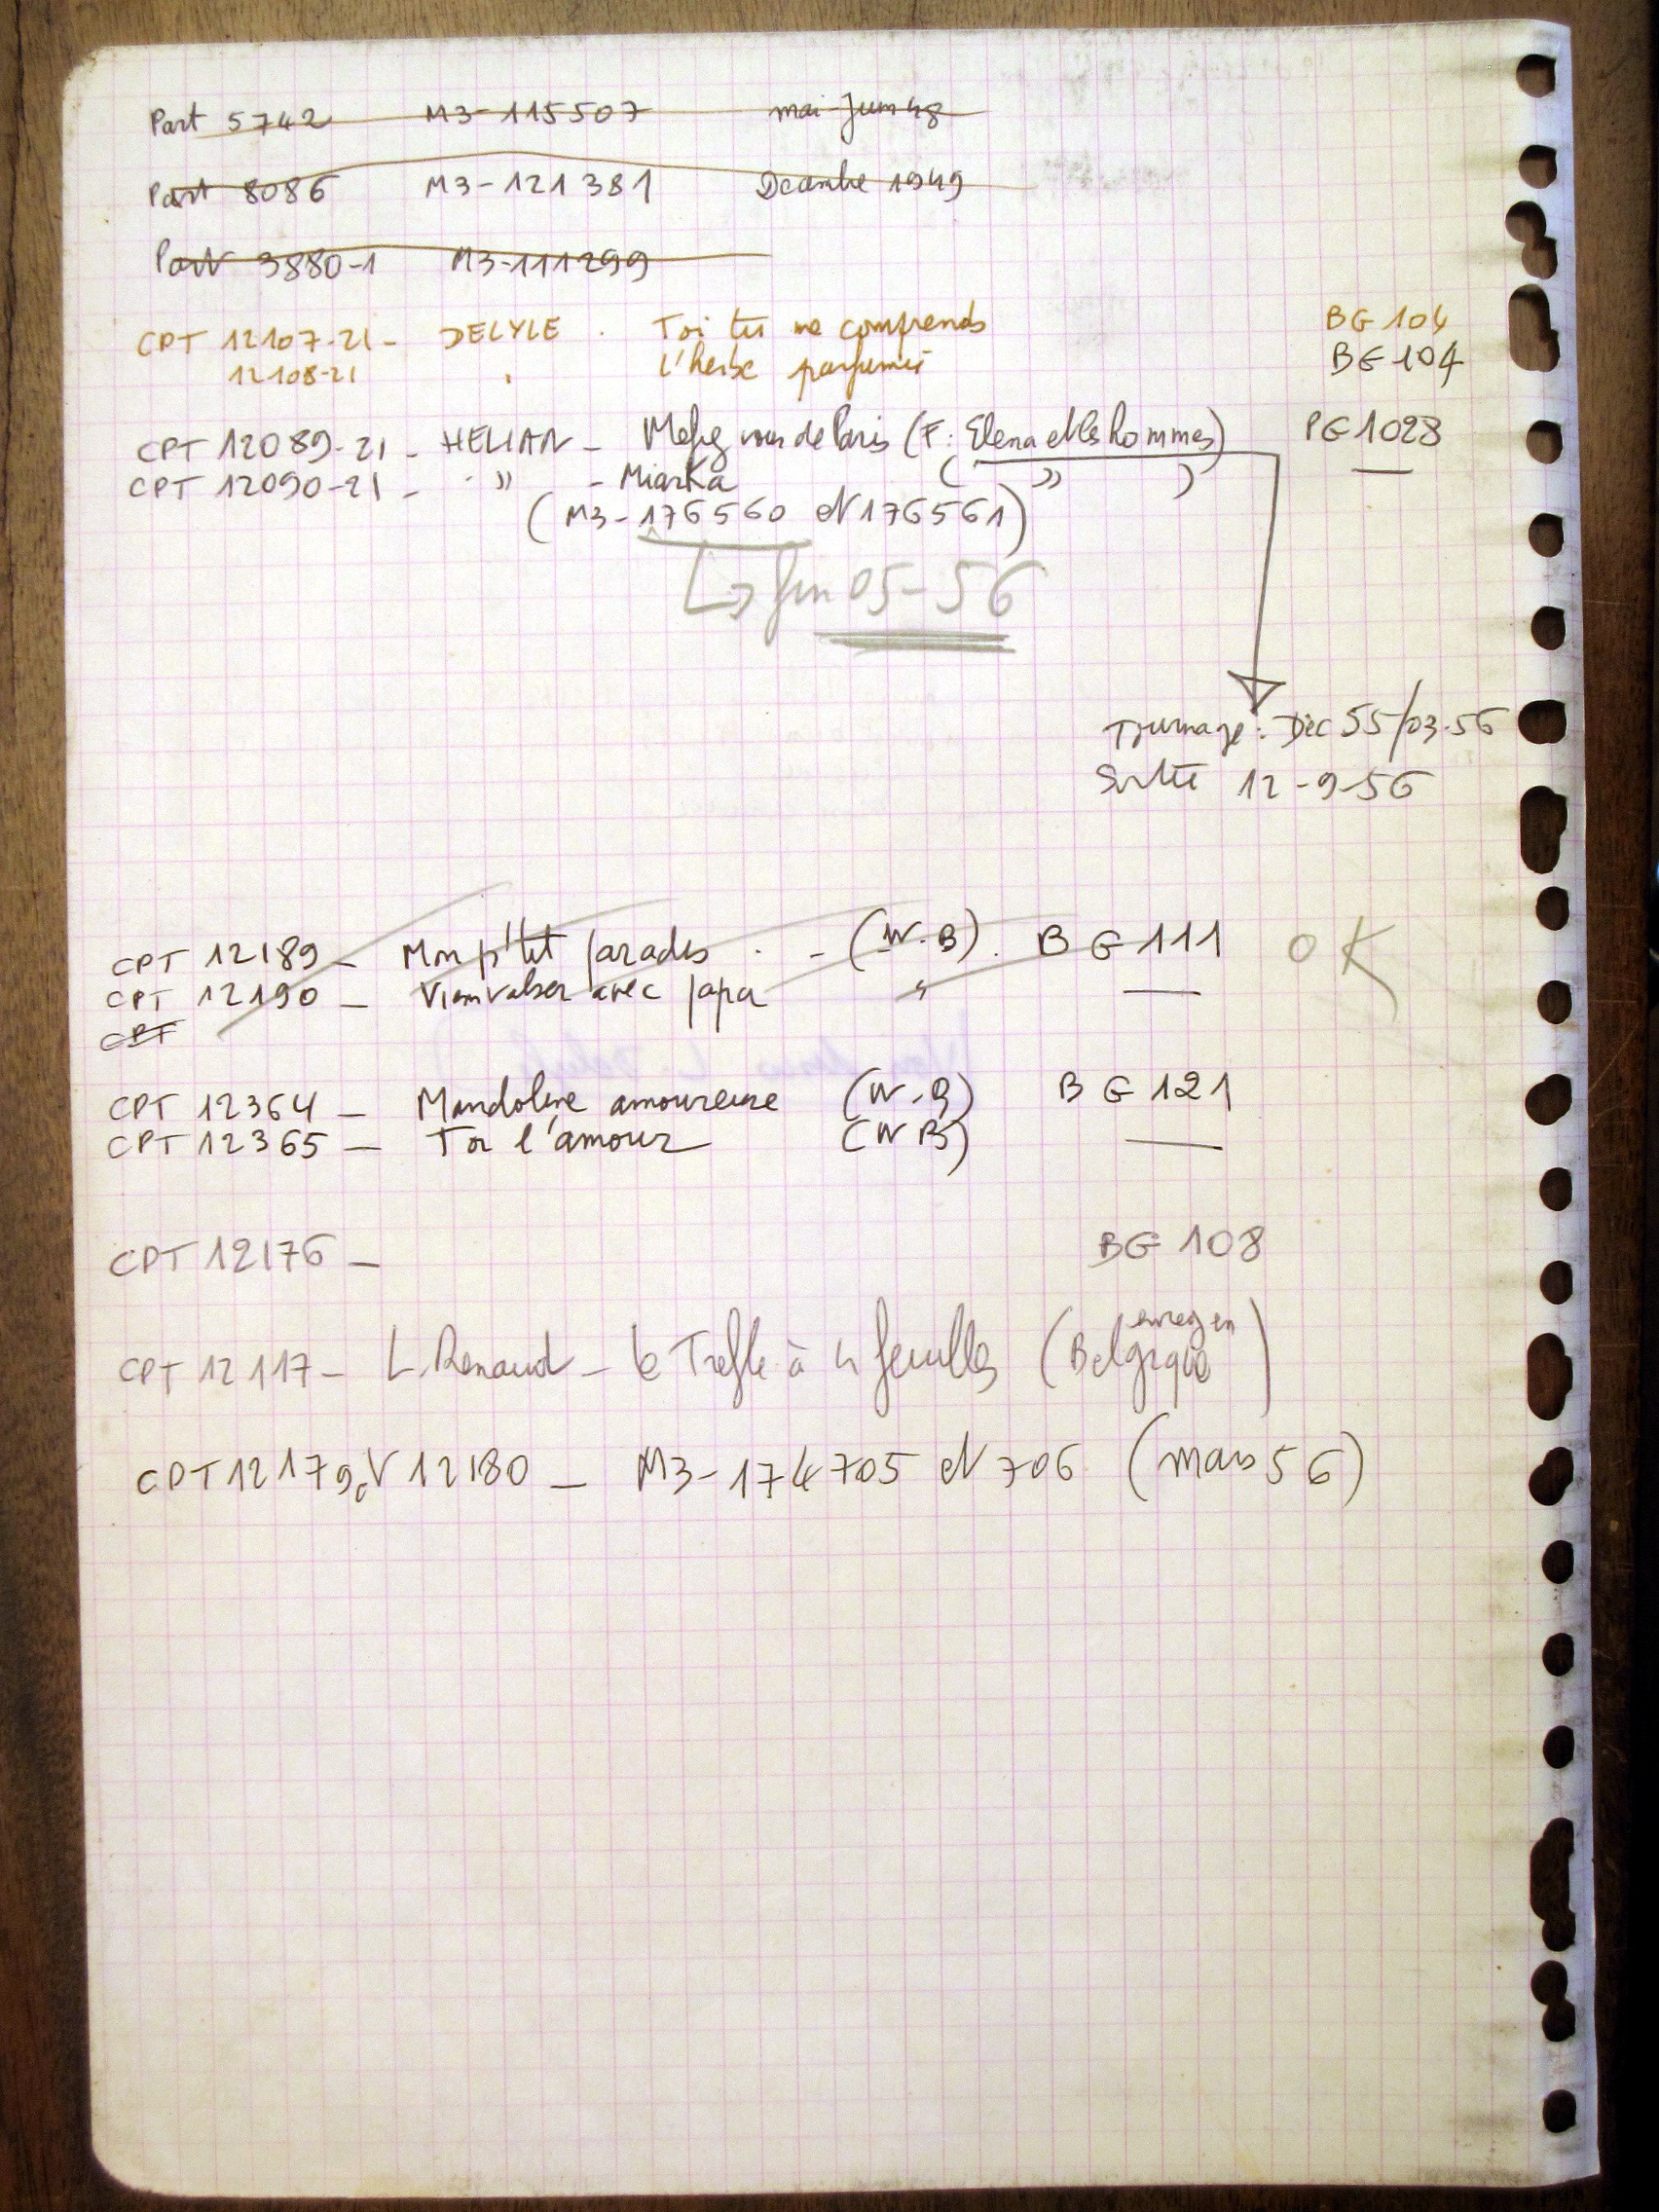 Part 5742 M3-115507 mai-Juin 48
Part 8086 M3-121381 Dcembre 1949
Part 3880-1 M3-111299
CPT 12107-21- DELYLE . Toi tu me comprends BG 104
12108-21 " l'herbe parfumée BG 104
CPT 12089-21 - HELIAN - Mefiez vous de Paris (F: Elena et les hommes) PG 1028
CPT 12090-21 - " - Miarka ( " ) —
(M3-176560 et 176561)
↳ fin 05-56
Tournage: Dec 55/03-56
Sortie 12-9-56
CPT 12189 - Mon p'tit paradis - (W.B). BG 111 OK
CPT 12190 - Viens valser avec papa " —
CPT
CPT 12364 - Mandoline amoureuse (W.B) BG 121
CPT 12365 - Toi l'amour (W B) —
CPT 12176 - BG 108
CPT 12117 - L. Renaud - le Trefle à 4 feuilles (enreg en Belgique)
CPT 12179 et 12180 - M3-174705 et 706 (mars 56)